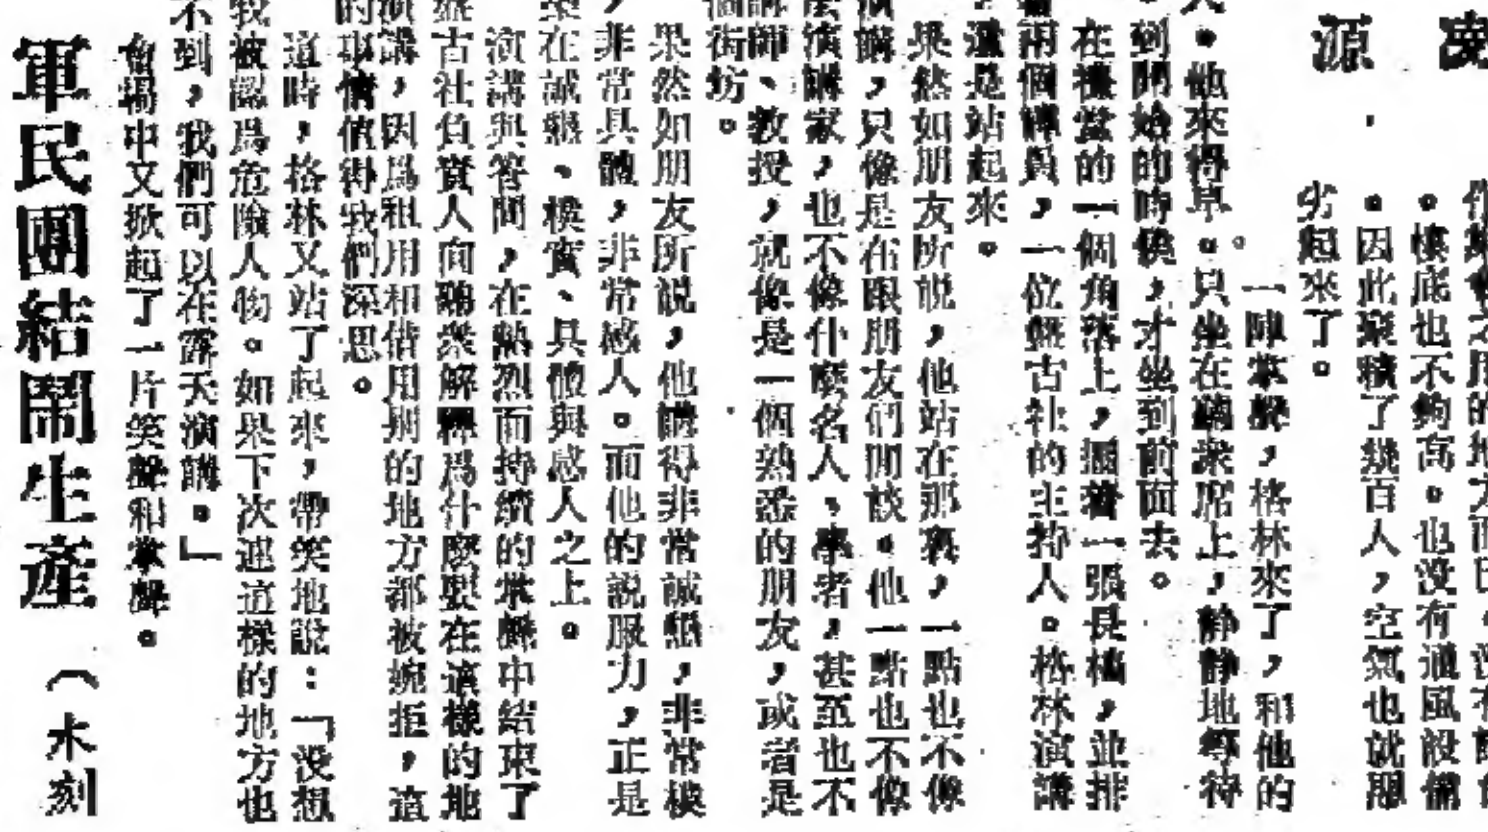 凌
源
作集會之用的地方而已。没有
。樓底也不夠高。也没有通風設備
。因此聚積了幾百人，空氣也就惡
劣起來了。
一陣掌聲，格林來了，和他的
人。他來得早。只坐在聽衆席上，靜靜地等待
。到開始的時候，才坐到前面去。
在禮堂的一個角落上，擺着一張長橋，並排
兩個講員，一位蒙古社的主持人。格林演講
，還是站起來。
果然如朋友所説，他站在那裏，一點也不像
演講，只像是在跟朋友們閒談。他一點也不像
演講家，也不像什麼名人、學者，甚至也不
講師、教授，就像是一個熟悉的朋友，或者是
個街坊。
果然如朋友所説，他講得非常誠懇，非常樸
，非常具體，非常感人。而他的説服力，正是
在誠懇、樸實、具體與感人之上。
演講與答問，在熱烈而持續的掌聲中結束了
古社負責人向聽衆解釋爲什麼要在這樣的地
演講，因爲租用和借用別的地方都被婉拒，這
的事情值得我們深思。
這時，格林又站了起來，帶笑地說：「没想
我被認爲危險人物。如果下次連這樣的地方也
不到，我們可以在露天演講。」
會場中又掀起了一片笑聲和掌聲。
軍民團結鬧生產（木刻